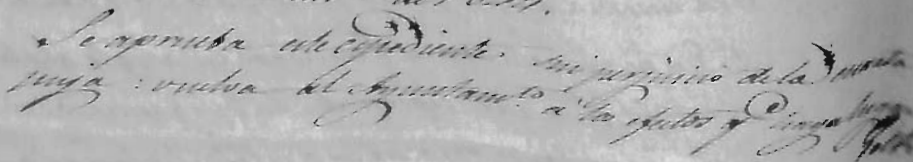 Se aprueba este espediente sin perjuicio de la quarta
puja: vuelva al Ayuntamto. a los efectos q haya lugar